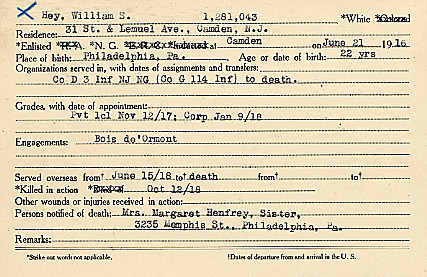 Hey, William S. 1,281,043 *White *Colored
Residence: 31 St. & Lemuel Ave., Camden, N.J.
*Enlisted *R.A. *N. G. *E.R.C. *Inducted at Camden on June 21 1916
Place of birth: Philadelphia, Pa. Age or date of birth: 22 yrs
Organizations served in, with dates of assignments and transfers:
Co D 3 Inf NJ NG (Co G 114 Inf) to death.
Grades, with date of appointment:
Pvt 1cl Nov 12/17; Corp Jan 9/18
Engagements: Bois de'Ormont
Served overseas from† June 15/18 to† death from† to†
*Killed in action Oct 12/18
Other wounds or injuries received in action:
Persons notified of death: Mrs. Margaret Henfrey, Sister,
3235 Memphis St., Philadelphia, Pa.
Remarks:
*Strike out words not applicable. †Dates of departure from and arrival in the U. S.